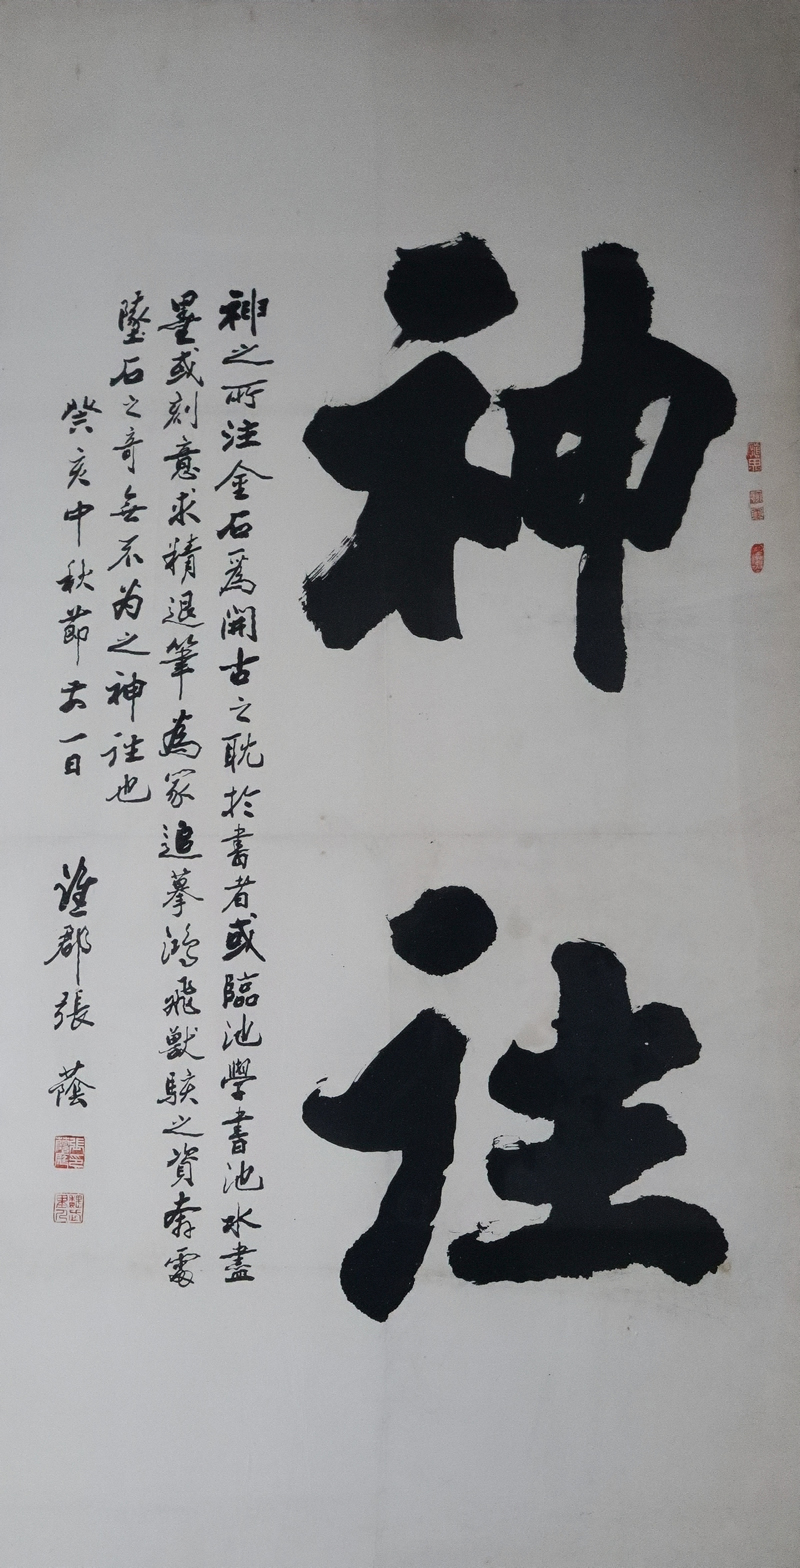 神注
神之所注金石爲開古之耽於書者或臨池學書池水盡
墨或刻意求精退筆為冢追摹鴻飛獸駭之資奔雷
墜石之奇無不为之神注也
癸亥中秋節前一日 譙郡張蔭